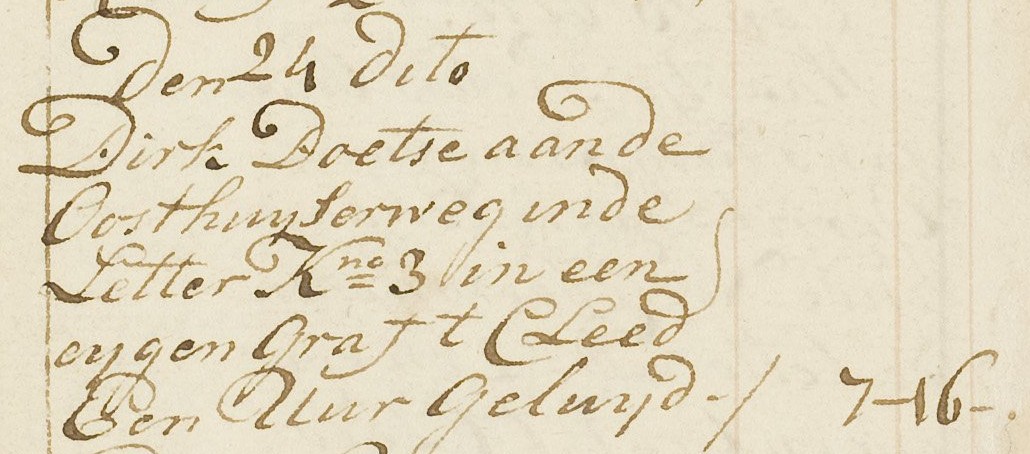 Den 24 dito
Dirk Doetse aande
Oosthuyserweg inde
Letter K no 3 in een
eygen Graf t Cleed
Een Uur Geluyd - / 7-16-.